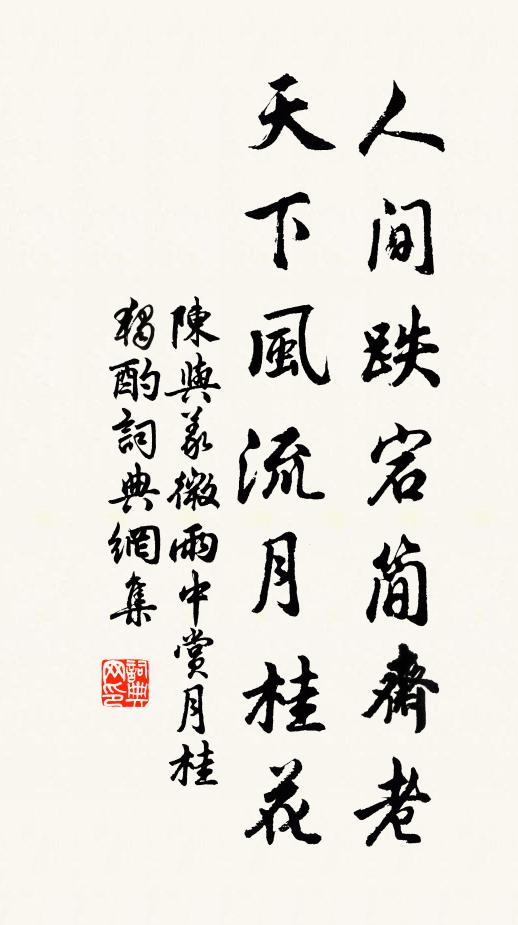 人間跌宕簡齋老
天下風流月桂花
陳與義微雨中賞月桂
獨酌詞典網集
詞典
网印